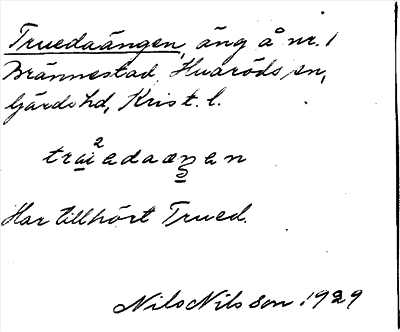 Truedaängen, äng å nr. 1
Brännestad, Huaröds sn,
Gärds hd, Krist. l.
Har tillhört Trued.
Nils Nilsson 1929